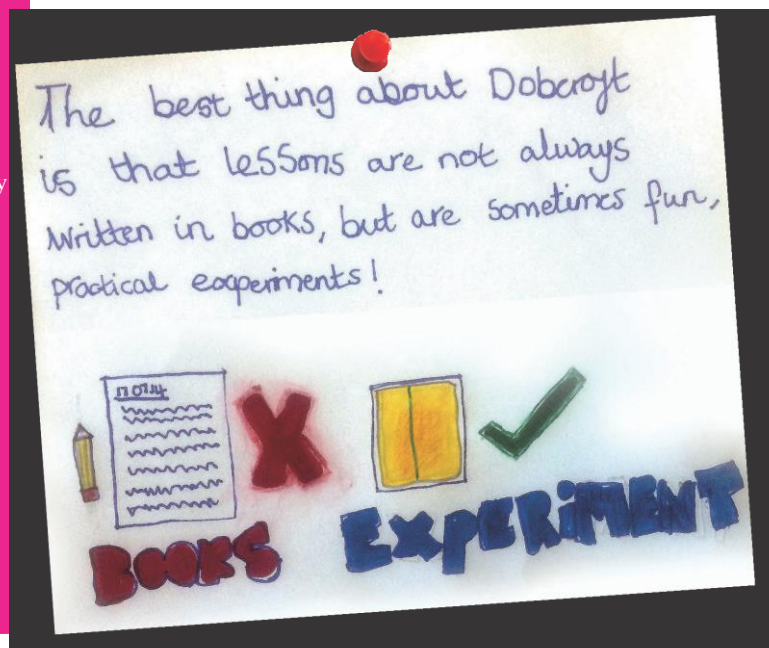 The best thing about Dobcroft
is that lessons are not always
written in books, but are sometimes fun,
practical experiments!
BOOKS
EXPERIMENT